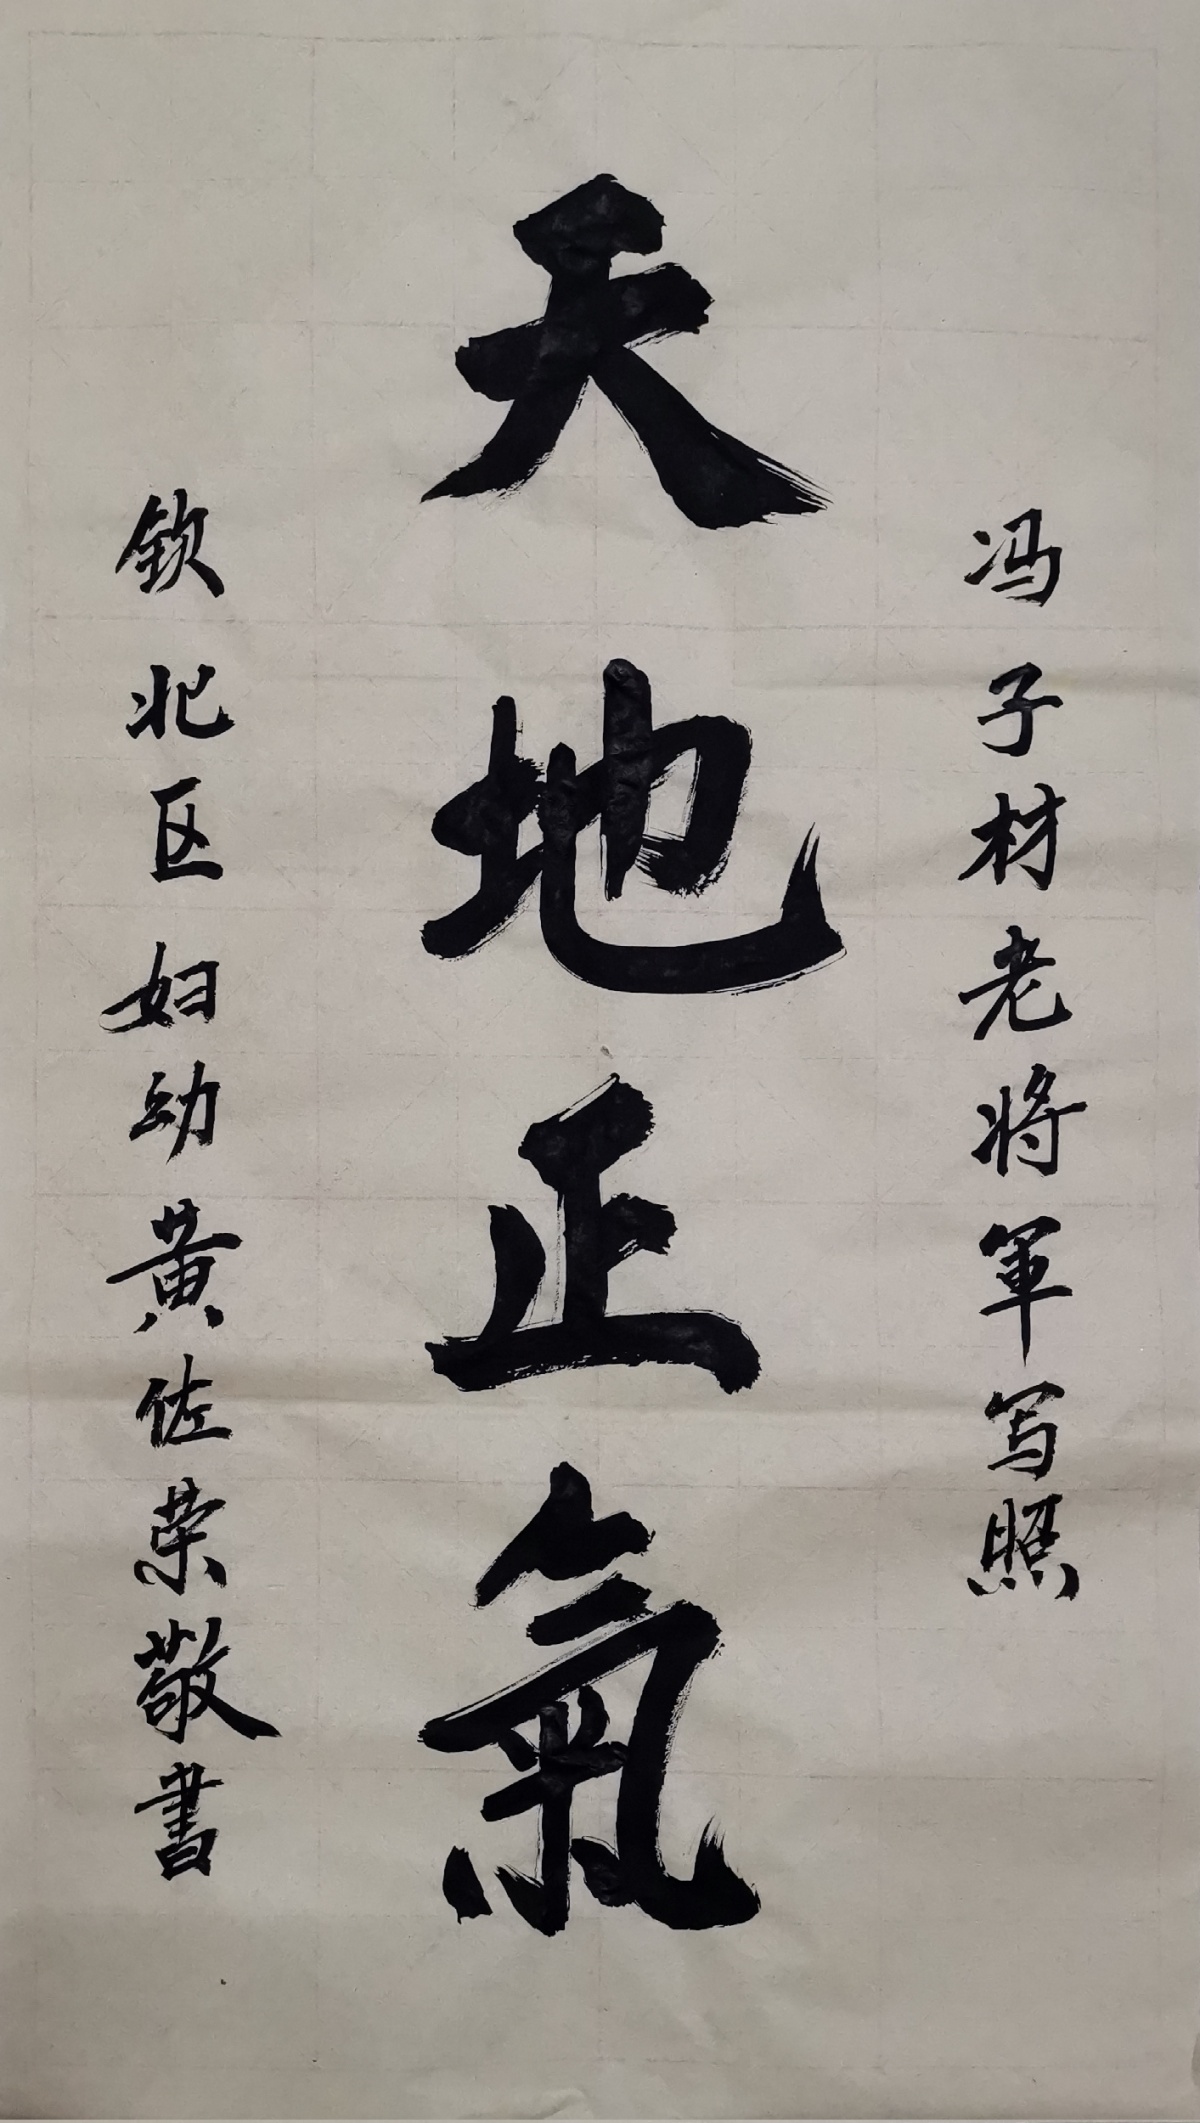 冯子材老将軍写照
天地正氣
钦北区妇幼黄佐荣敬書